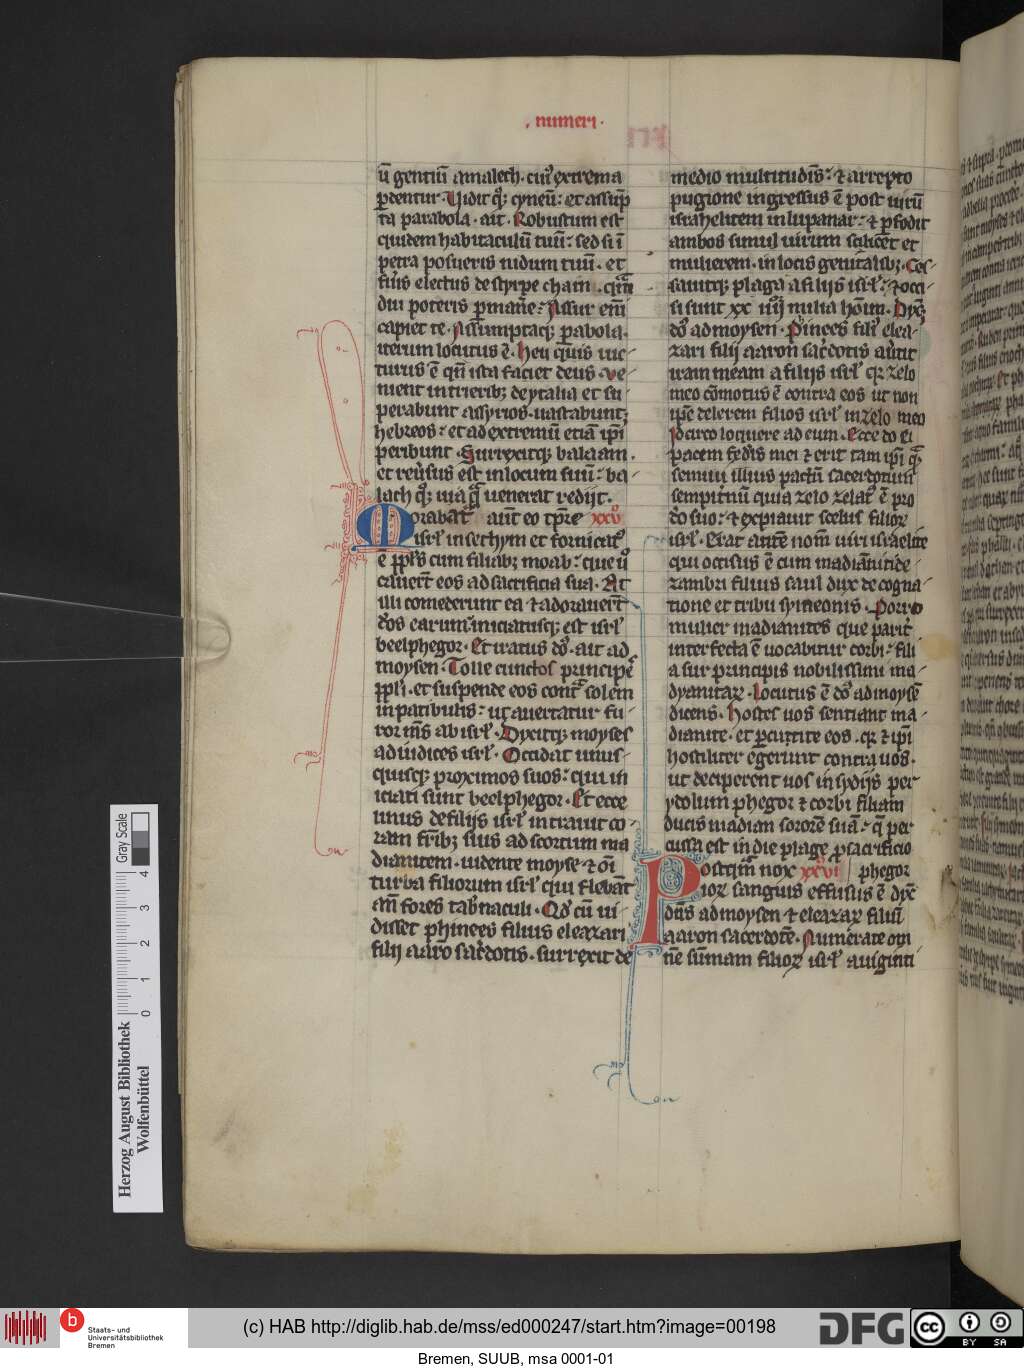 numeri
ū gentiū amalech. cuiꝰ extrema
ꝑdentur. Vidit qͦꝫ cyneū: et assūp
ta parabola. ait. Robustum est
quidem habitaculū tuū: sed si ī
petra posueris nidum tuū. et
fūis electus de styrpe chain. qͣm
diu poteris ꝑmanē: Assur em̄
capiet te. Assumptaqꝫ parabola.
iterum locutus ē. Heu quis vic
turus ē qn̄ ista faciet deus. ve
nient in trieribꝫ de ytalia et su
perabunt assyrios. uastabuntqꝫ
hebreos: et ad extremū etiā ip̄i
peribunt. Surrexitqꝫ balaam.
et reūsus est in locum suū: ba
lach qͦꝫ uia qͣ uenerat redijt.
Morabat̄ aūt eo tp̄re xxvͦ
isrl̄ in sethym et fornicatꝰ
ē ppl̄s cum filiabꝫ moab: que uͦ
cauert̄ eos ad sacrificia sua. At
illi comederunt ea ⁊ adorauert̄
dōs earum. iniciatusqꝫ est isrl̄
beelphegor. Et iratus dō. ait ad
moysen. Tolle cunctos principes
ppl̄i. et suspende eos contͣ solem
in patibulis: ut auertatur fu
ror m̄s ab isrl̄. Dyxitqꝫ moyses
ad iudices isrl̄. Occidat unus
quisqꝫ proximos suos: qui in
iciati sunt beelphegor. Et ecce
unus de filijs isrl̄ intrauit co
ram fr̄ibꝫ suis ad scortum ma
dianitem. uidente moyse ⁊ oī
turba filiorum isrl̄ qui flebāt
an̄ fores tab̄naculi. Qd̄ cū ui
disset phinees filius eleazari
filij aarō sac̄dotis. surrexit de
medio multitudīs: ⁊ arrepto
pugione ingressus ē post uirū
israhelitem in lupanar: ⁊ ꝑfodit
ambos simul uirum scilicet et
mulierem. in locis genitalibꝫ. Ces
sauitqꝫ plaga a filijs isrl̄: ⁊ occi
si sunt xx iiij milia hōm. Dyxꝫ
dō ad moysen. Pinees filiꝰ elea
zari filij aaron sac̄dotis aūtit
iram meam a filijs isrl̄ qꝛ zelo
meo cōmotus ē contra eos ut non
ip̄e delerem filios isrl̄ in zelo meo
Idcirco loquere ad eum. Ecce do ei
pacem fed̄is mei ⁊ erit tam ip̄i qͣ
semini illius pactū sacerdotium
sempit̄nū quia zelo zelatꝰ ē pro
dō suo: ⁊ expiauit scelus filioꝝ
isrl̄. Erat autē nom̄ uiri israelite
qui occisus ē cum madiānitide
zambri filius saul dux de cogna
tione et tribu symeonis. Porro
mulier madianites que parit̄
interfecta ē uocabitur corbi: fili
a sur principis nobilissimi ma
dyanitaꝝ. Locutus ē dō ad moysē
dicens. Hostes uos sentiant ma
dianite. et ꝑcutite eos. qꝛ ⁊ ip̄i
hostiliter egerunt contra uos.
ut deciperent uos insydijs per
ydolum phegor ⁊ corbi filiam
ducis madian sororē suā: q̄ per
cussa est in die plage ꝓ sacrificio
Postqͣm nox xxͦvi phegor
ioꝝ sanguis effusus ē dyx̄
dn̄s ad moysen ⁊ eleazaꝝ filiū
aaron sacerdotē. Numerate om̄
nē sūmam filioꝝ isrl̄ a uiginti
Gray Scale
0 1 2 3 4
Herzog August Bibliothek
Wolfenbüttel
b
Staats- und
Universitätsbibliothek
Bremen
(c) HAB http://diglib.hab.de/mss/ed000247/start.htm?image=00198
DFG
cc
BY SA
Bremen, SUUB, msa 0001-01